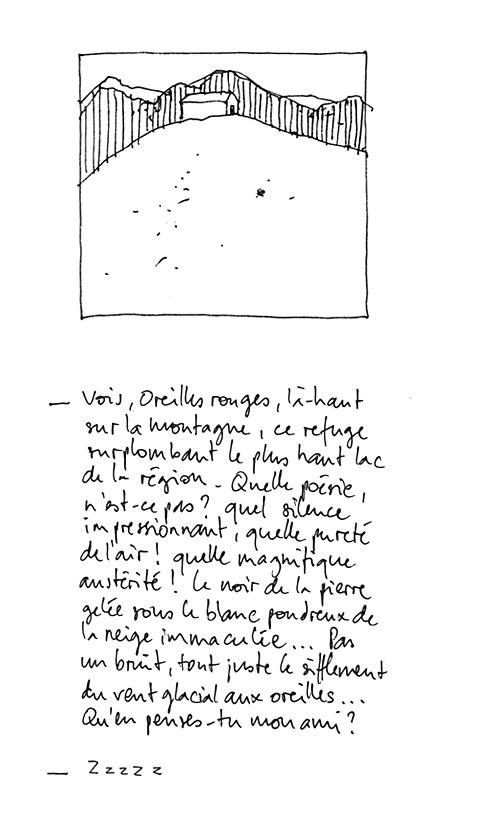 — Vois, Oreilles rouges, là-haut
sur la montagne, ce refuge
surplombant le plus haut lac
de la région - Quelle poésie,
n'est-ce pas ? quel silence
impressionnant, quelle pureté
de l'air ! quelle magnifique
austérité ! le noir de la pierre
gelée sous le blanc poudreux de
la neige immaculée... Pas
un bruit, tout juste le sifflement
du vent glacial aux oreilles...
Qu'en penses-tu mon ami ?
— Zzzzz